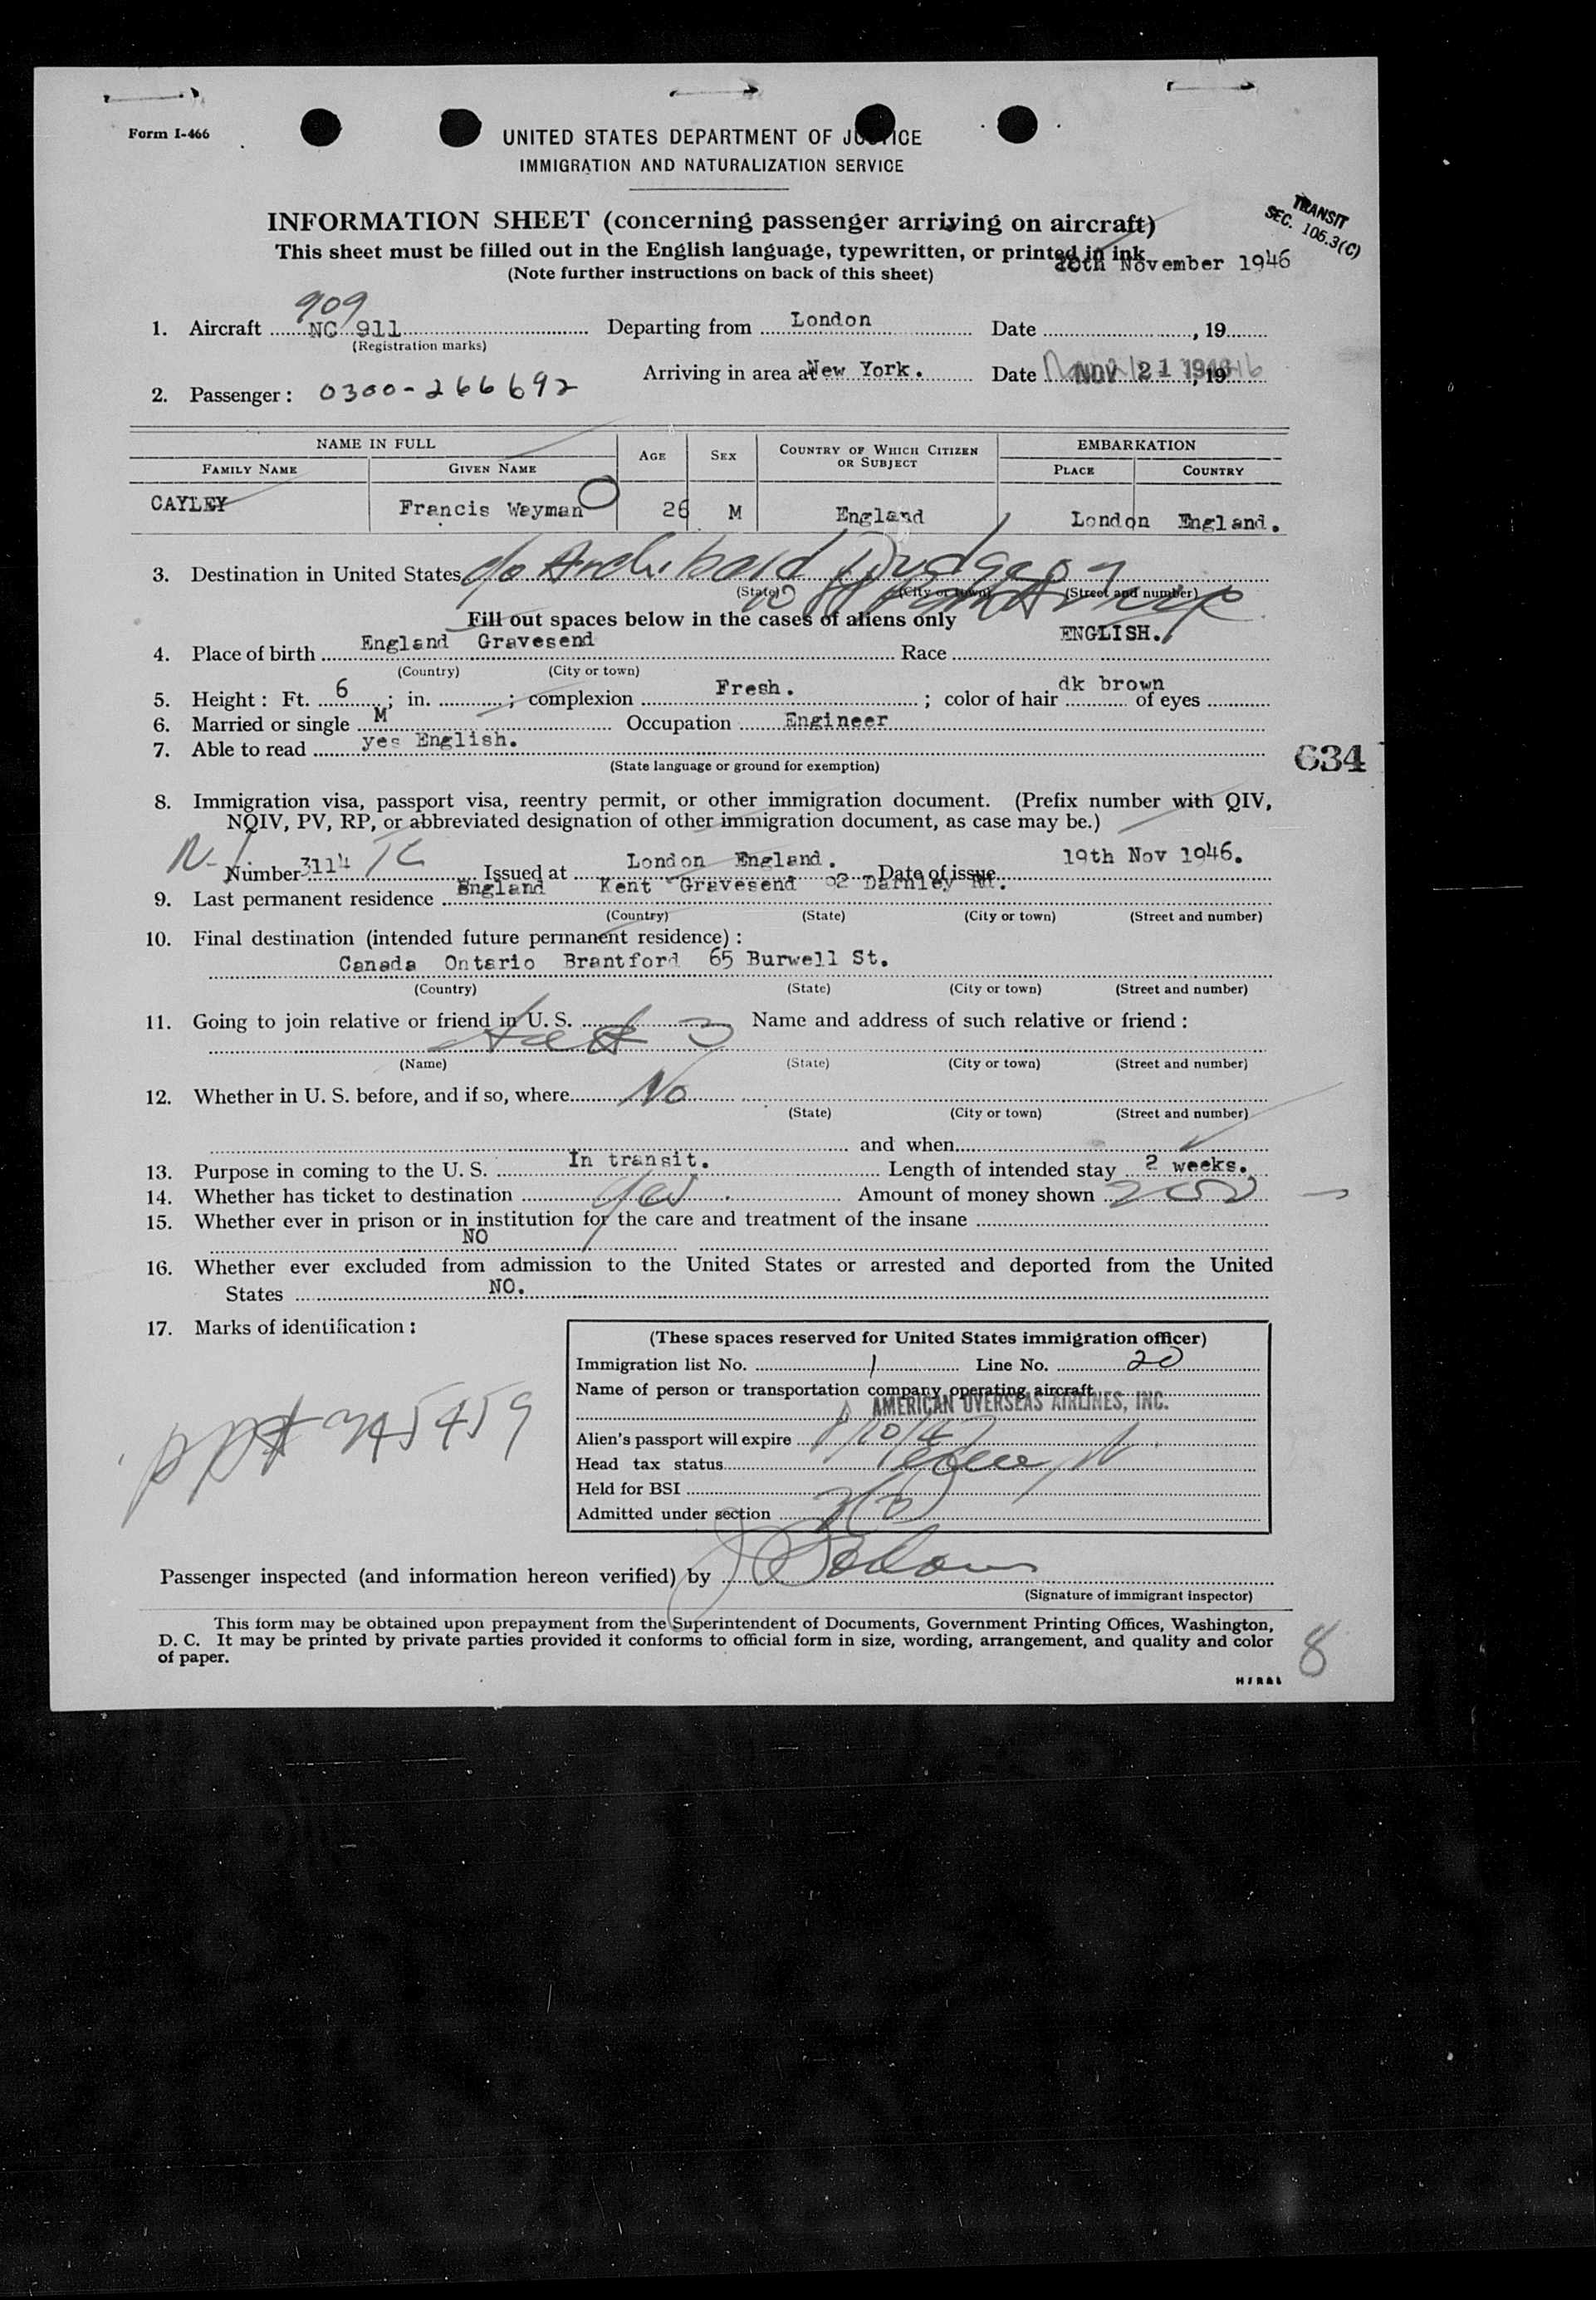 Form I-466
UNITED STATES DEPARTMENT OF JUSTICE
IMMIGRATION AND NATURALIZATION SERVICE
TRANSIT
SEC. 105.3(C)
INFORMATION SHEET (concerning passenger arriving on aircraft)
This sheet must be filled out in the English language, typewritten, or printed in ink
(Note further instructions on back of this sheet)
20th November 1946
909
1. Aircraft NC 911 Departing from London Date , 19
(Registration marks)
Arriving in area at New York. Date NOV 21 1946, 19
2. Passenger: 0300-266692
NAME IN FULL AGE SEX COUNTRY OF WHICH CITIZEN OR SUBJECT EMBARKATION
FAMILY NAME GIVEN NAME PLACE COUNTRY
CAYLEY Francis Wayman 26 M England London England.
3. Destination in United States c/o Archibald Dudgeon
(State) (City or town) (Street and number)
Fill out spaces below in the cases of aliens only
4. Place of birth England Gravesend Race ENGLISH.
(Country) (City or town)
5. Height: Ft. 6; in. ; complexion Fresh. ; color of hair dk brown of eyes
6. Married or single M Occupation Engineer
7. Able to read yes English.
(State language or ground for exemption)
634
8. Immigration visa, passport visa, reentry permit, or other immigration document. (Prefix number with QIV,
NQIV, PV, RP, or abbreviated designation of other immigration document, as case may be.)
Number 3114 Issued at London England. Date of issue 19th Nov 1946.
9. Last permanent residence England Kent Gravesend 92 Darnley Rd.
(Country) (State) (City or town) (Street and number)
10. Final destination (intended future permanent residence):
Canada Ontario Brantford 65 Burwell St.
(Country) (State) (City or town) (Street and number)
11. Going to join relative or friend in U. S. Name and address of such relative or friend:
(Name) (State) (City or town) (Street and number)
12. Whether in U. S. before, and if so, where No
(State) (City or town) (Street and number)
and when
13. Purpose in coming to the U. S. In transit. Length of intended stay 2 weeks.
14. Whether has ticket to destination yes Amount of money shown
15. Whether ever in prison or in institution for the care and treatment of the insane
NO
16. Whether ever excluded from admission to the United States or arrested and deported from the United
States NO.
17. Marks of identification:
ppt 245459
(These spaces reserved for United States immigration officer)
Immigration list No. 1 Line No. 20
Name of person or transportation company operating aircraft
AMERICAN OVERSEAS AIRLINES, INC.
Alien's passport will expire
Head tax status
Held for BSI
Admitted under section 3(3)
Passenger inspected (and information hereon verified) by
(Signature of immigrant inspector)
This form may be obtained upon prepayment from the Superintendent of Documents, Government Printing Offices, Washington,
D. C. It may be printed by private parties provided it conforms to official form in size, wording, arrangement, and quality and color
of paper.
8